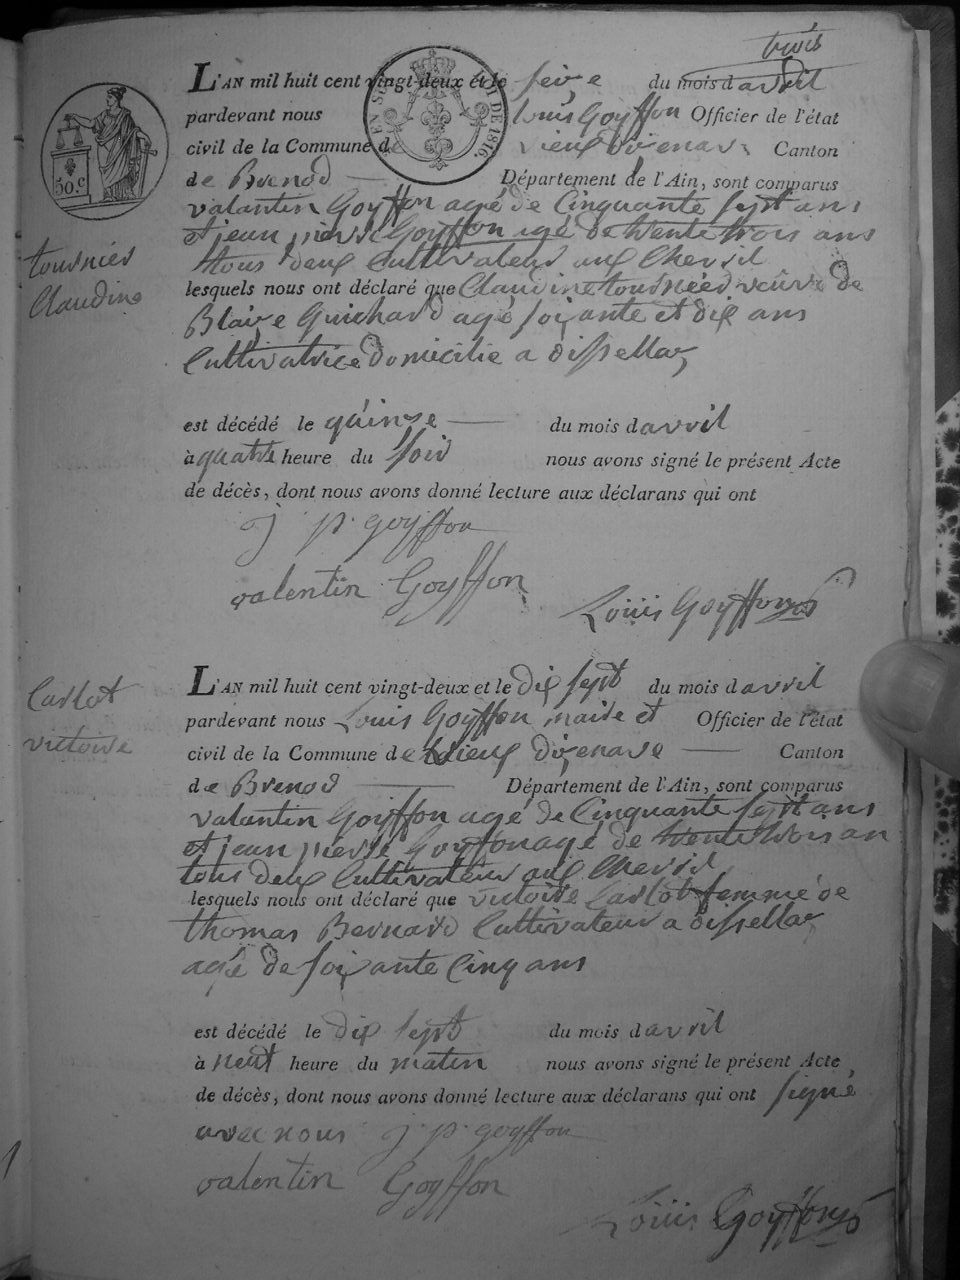 trois
L'AN mil huit cent vingt-deux et le seize du mois d avril
pardevant nous Louis Goyffon Officier de l'état
civil de la Commune de vieux dizenave Canton
de Brenod Département de l'Ain, sont comparus
valantin Goyffon agé de Cinquante sept ans
et jean pierre Goyffon agé de trente trois ans
tous deux Cultivateur aux Chevril
lesquels nous ont déclaré que Claudine tourniéd veuve de
Blaize Guichard agé soixante et dix ans
Cultivatrice domicilié a dissellaz
est décédé le quinse du mois d avril
à quatre heure du soir nous avons signé le présent Acte
de décès, dont nous avons donné lecture aux déclarans qui ont
j p goyffon
valentin Goyffon
Louis Goyffon
EN SUS
LOI DE 1816.
50. c
tourniér
Claudine
Carlot
victoire
L'AN mil huit cent vingt-deux et le dix sept du mois d avril
pardevant nous Louis Goyffon maire et Officier de l'état
civil de la Commune de vieux dizenave Canton
de Brenod Département de l'Ain, sont comparus
valantin Goyffon agé de Cinquante sept ans
et jean pierre Goyffon agé de trente trois an
tous deux Cultivateur aux Chevril
lesquels nous ont déclaré que victoire Carlot femme de
thomas Bernard Cultivateur a dissellaz
agé de soixante Cinq ans
est décédé le dix sept du mois d avril
à neuf heure du matin nous avons signé le présent Acte
de décès, dont nous avons donné lecture aux déclarans qui ont signé
avec nous j. p. goyffon
valentin Goyffon
Louis Goyffon